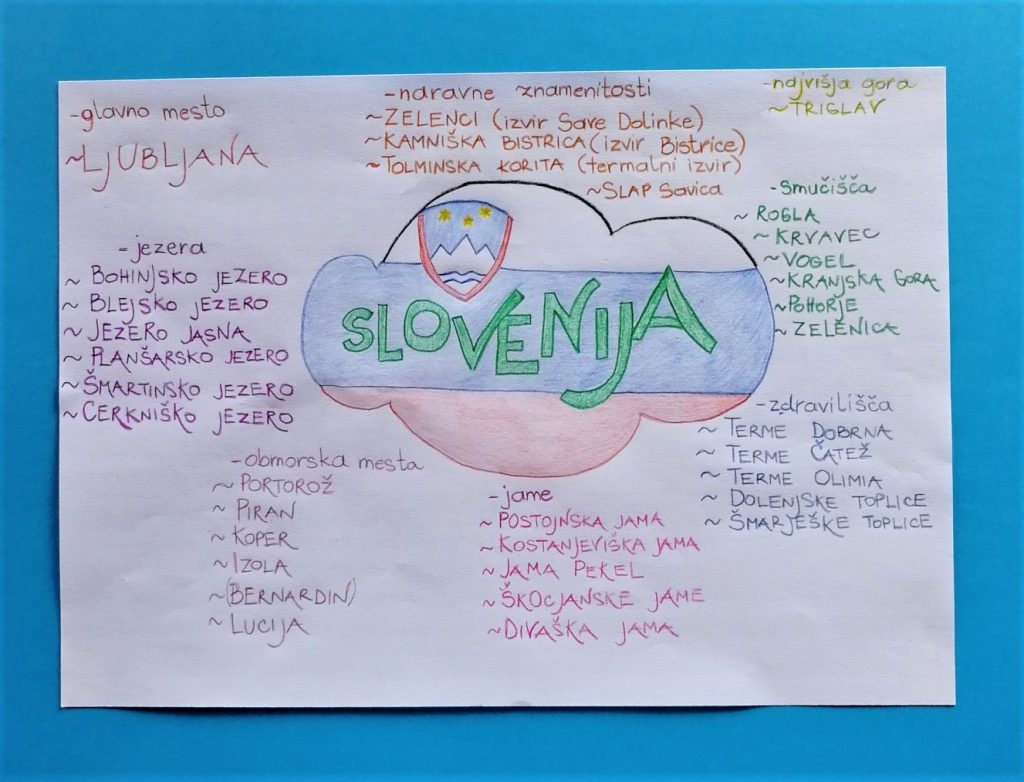 -glavno mesto
~LJUBLJANA
-naravne znamenitosti
~ZELENCI (izvir Save Dolinke)
~KAMNIŠKA BISTRICA (izvir Bistrice)
~TOLMINSKA KORITA (termalni izvir)
~SLAP Savica
-najvišja gora
~TRIGLAV
-smučišča
~ROGLA
~KRVAVEC
~VOGEL
~KRANJSKA GORA
~POHORJE
~ZELENICA
-jezera
~BOHINJSKO JEZERO
~BLEJSKO JEZERO
~JEZERO JASNA
~PLANŠARSKO JEZERO
~ŠMARTINSKO JEZERO
~CERKNIŠKO JEZERO
SLOVENIJA
-zdravilišča
~TERME DOBRNA
~TERME ČATEŽ
~TERME OLIMIA
~DOLENJSKE TOPLICE
~ŠMARJEŠKE TOPLICE
-obmorska mesta
~PORTOROŽ
~PIRAN
~KOPER
~IZOLA
~(BERNARDIN)
~LUCIJA
-jame
~POSTOJNSKA JAMA
~KOSTANJEVIŠKA JAMA
~JAMA PEKEL
~ŠKOCJANSKE JAME
~DIVAŠKA JAMA